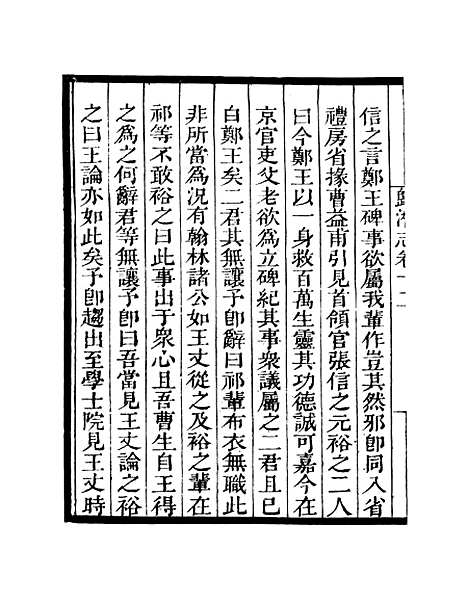 歸潛志卷十二
信之言鄭王碑事欲屬我輩作豈其然邪卽同入省
禮房省掾曹益甫引見首領官張信之元裕之二人
曰今鄭王以一身救百萬生靈其功德誠可嘉今在
京官吏父老欲爲立碑紀其事衆議屬之二君且已
白鄭王矣二君其無讓予卽辭曰祁輩布衣無職此
非所當爲况有翰林諸公如王丈從之及裕之輩在
祁等不敢裕之曰此事出于衆心且吾曹生自王得
之爲之何辭君等無讓予卽曰吾當見王丈論之裕
之曰王論亦如此矣予卽趨出至學士院見王丈時